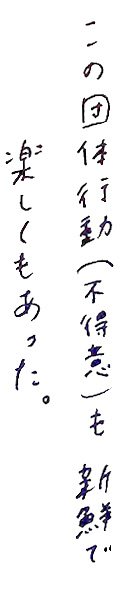 この団体行動(不得意)も 新鮮で
楽しくもあった。